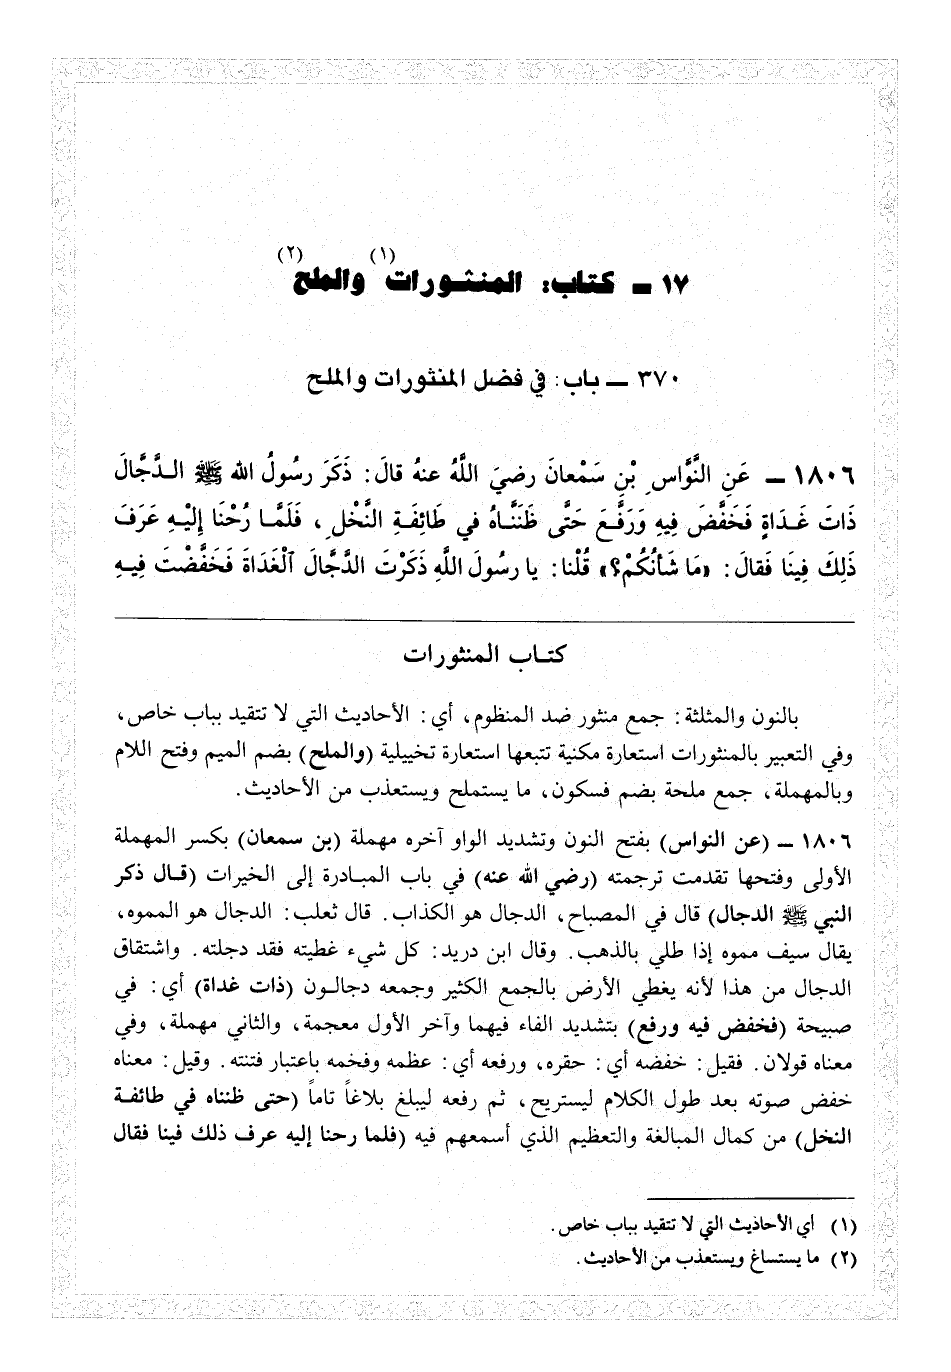 ١٧ - كتاب: المنثورات(١) والملح(٢)
٣٧٠ - باب: في فضل المنثورات والملح
١٨٠٦ - عَنِ النَّوَّاسِ بْنِ سَمْعانَ رضيَ اللَّهُ عنهُ قالَ: ذَكَرَ رسُولُ الله ﷺ الدَّجَّالَ
ذَاتَ غَدَاةٍ فَخَفَّضَ فِيهِ وَرَفَّعَ حَتَّى ظَنَنَّاهُ في طَائِفَةِ النَّخْلِ، فَلَمَّا رُحْنَا إلَيْهِ عَرَفَ
ذَلِكَ فِينَا فَقالَ: «مَا شَأْنُكُمْ؟» قُلْنا: يا رسُولَ اللَّهِ ذَكَرْتَ الدَّجَّالَ ٱلْغَدَاةَ فَخَفَّضْتَ فِيهِ
كتاب المنثورات
بالنون والمثلثة: جمع منثور ضد المنظوم، أي: الأحاديث التي لا تتقيد بباب خاص،
وفي التعبير بالمنثورات استعارة مكنية تتبعها استعارة تخييلية (والملح) بضم الميم وفتح اللام
وبالمهملة، جمع ملحة بضم فسكون، ما يستملح ويستعذب من الأحاديث.
١٨٠٦ - (عن النواس) بفتح النون وتشديد الواو آخره مهملة (بن سمعان) بكسر المهملة
الأولى وفتحها تقدمت ترجمته (رضي الله عنه) في باب المبادرة إلى الخيرات (قال ذكر
النبي ﷺ الدجال) قال في المصباح، الدجال هو الكذاب. قال ثعلب: الدجال هو المموه،
يقال سيف مموه إذا طلي بالذهب. وقال ابن دريد: كل شيء غطيته فقد دجلته. واشتقاق
الدجال من هذا لأنه يغطي الأرض بالجمع الكثير وجمعه دجالون (ذات غداة) أي: في
صبيحة (فخفض فيه ورفع) بتشديد الفاء فيهما وآخر الأول معجمة، والثاني مهملة، وفي
معناه قولان. فقيل: خفضه أي: حقره، ورفعه أي: عظمه وفخمه باعتبار فتنته. وقيل: معناه
خفض صوته بعد طول الكلام ليستريح، ثم رفعه ليبلغ بلاغاً تاماً (حتى ظنناه في طائفة
النخل) من كمال المبالغة والتعظيم الذي أسمعهم فيه (فلما رحنا إليه عرف ذلك فينا فقال
(١) أي الأحاديث التي لا تتقيد بباب خاص.
(٢) ما يستساغ ويستعذب من الأحاديث.